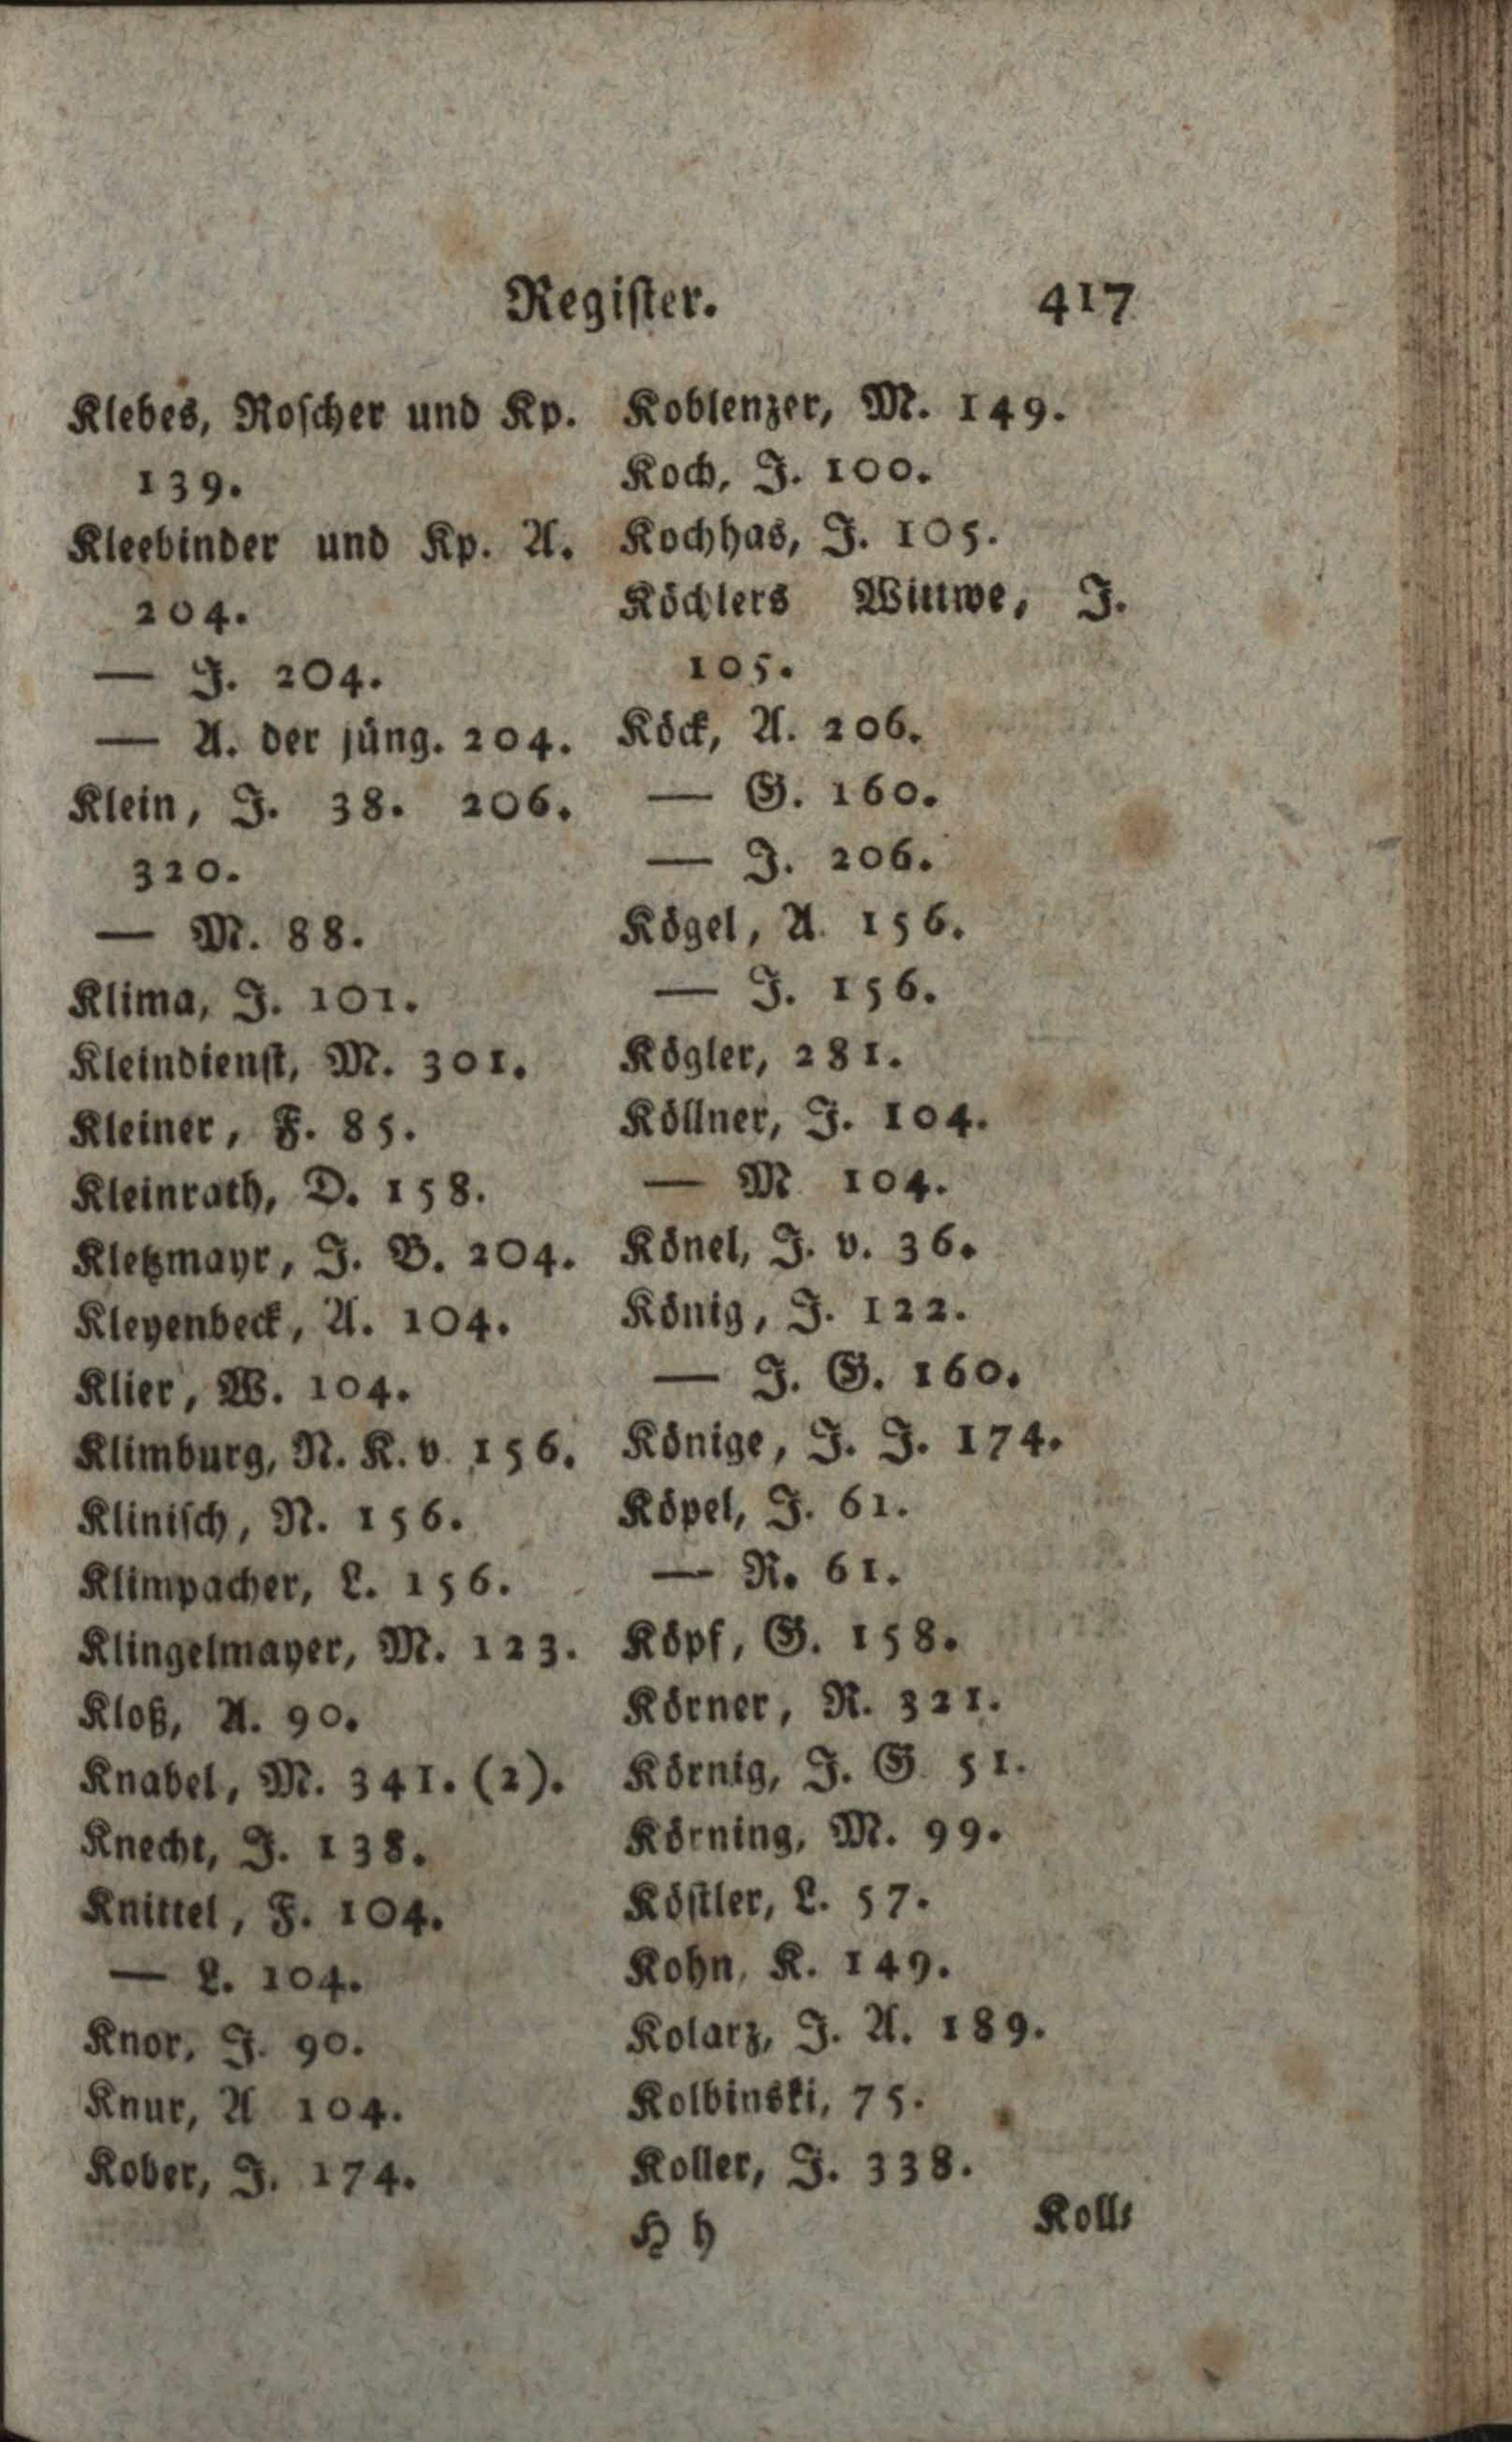 Register. 417
Klebes, Roscher und Kp.
139.
Kleebinder und Kp. A.
204.
— J. 204.
— A. der jüng. 204.
Klein, J. 38. 206.
320.
— M. 88.
Klima, J. 101.
Kleindienst, M. 301.
Kleiner, F. 85.
Kleinrath, D. 158.
Kletzmayr, J. B. 204.
Kleyenbeck, A. 104.
Klier, W. 104.
Klimburg, N. K. v. 156.
Klinisch, N. 156.
Klimpacher, L. 156.
Klingelmayer, M. 123.
Kloß, A. 90.
Knabel, M. 341. (2).
Knecht, J. 138.
Knittel, F. 104.
— L. 104.
Knor, J. 90.
Knur, A 104.
Kober, J. 174.
Koblenzer, M. 149.
Koch, J. 100.
Kochhas, J. 105.
Köchlers Wittwe, J.
105.
Köck, A. 206.
— G. 160.
— J. 206.
Kögel, A. 156.
— J. 156.
Kögler, 281.
Köllner, J. 104.
— M 104.
Könel, J. v. 36.
König, J. 122.
— J. G. 160.
Könige, J. J. 174.
Köpel, J. 61.
— R. 61.
Köpf, G. 158.
Körner, R. 321.
Körnig, J. G. 51.
Körning, M. 99.
Köstler, L. 57.
Kohn, K. 149.
Kolarz, J. A. 189.
Kolbinski, 75.
Koller, J. 338.
H h Koll-